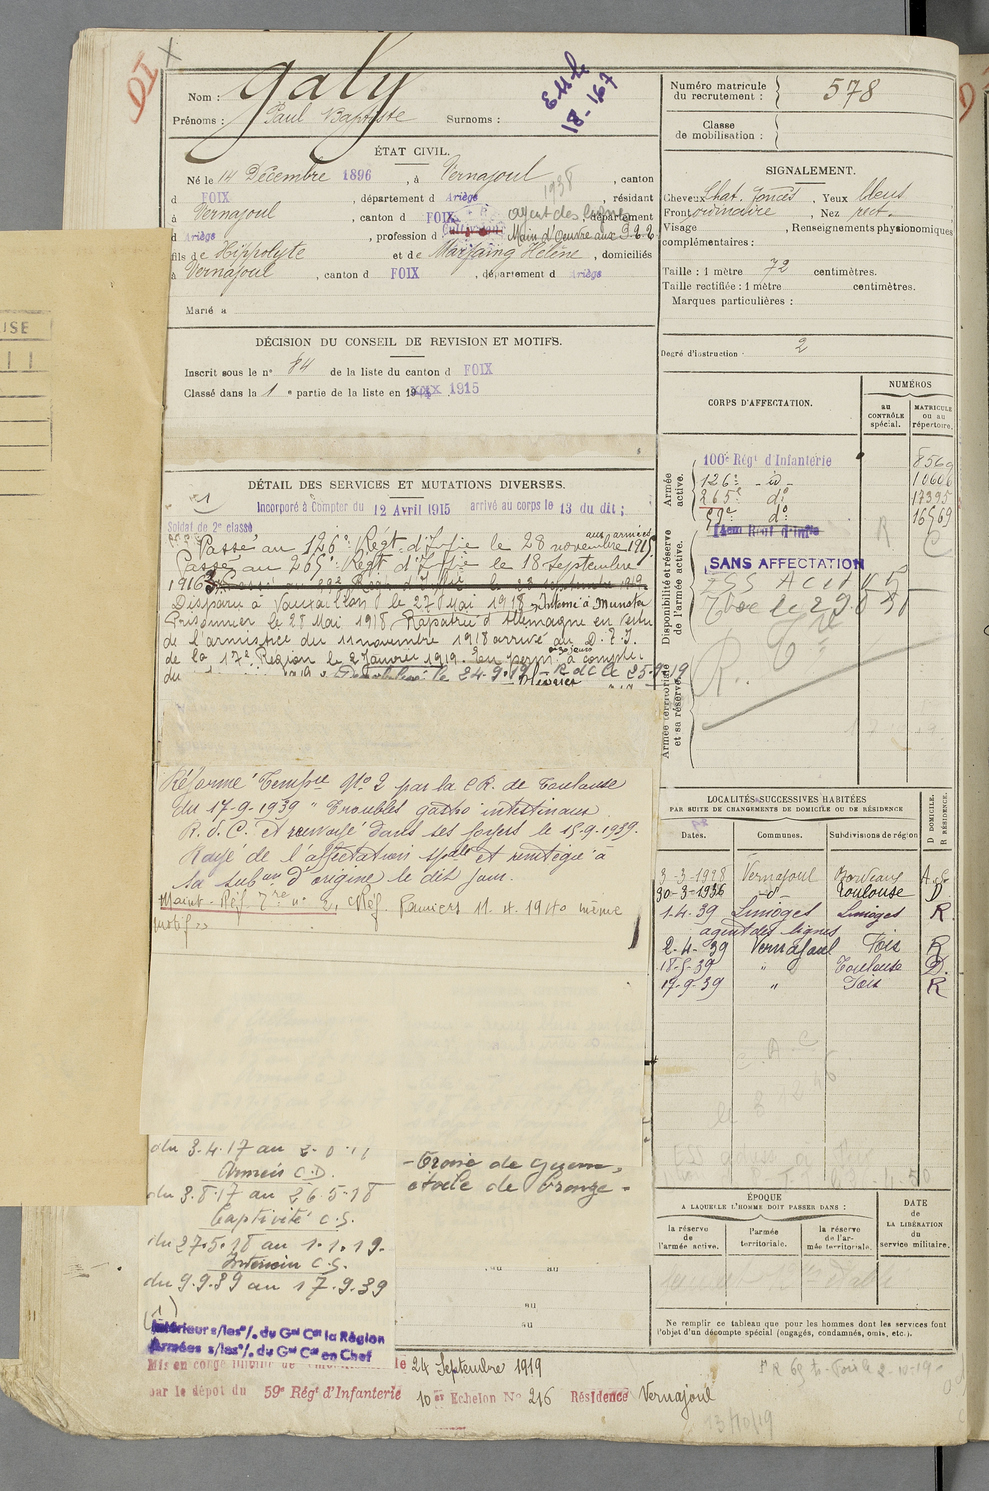 DI
Nom : Galy
Prénoms : Paul Baptiste Surnoms :
18-167
Numéro matricule du recrutement : 578
Classe de mobilisation :
ÉTAT CIVIL.
Né le 14 Décembre 1896, à Vernajoul, canton
d FOIX, département d Ariège, résidant
1938
à Vernajoul, canton d FOIX, département
agent des lignes
d Ariège, profession d Cultivateur Main d'Oeuvre aux
fils de Hippolyte et de Marfaing Hélène, domiciliés
à Vernajoul, canton d FOIX, département d Ariège
Marié à
SIGNALEMENT.
Cheveux Chat. foncés, Yeux bleus
Front ordinaire, Nez rect.
Visage , Renseignements physionomiques
complémentaires :
Taille : 1 mètre 72 centimètres.
Taille rectifiée : 1 mètre centimètres.
Marques particulières :
Degré d'instruction : 2
DÉCISION DU CONSEIL DE REVISION ET MOTIFS.
Inscrit sous le n° 84 de la liste du canton d FOIX
Classé dans la 1 e partie de la liste en 19 xxx 1915
CORPS D'AFFECTATION.
NUMÉROS
au CONTRÔLE spécial.
MATRICULE ou au répertoire.
Armée active.
100e Régt d'Infanterie 8569
126e - id - 10606
265e do 17395
59e do 16569
Disponibilité et réserve de l'armée active.
SANS AFFECTATION
Armée territoriale et sa réserve.
DÉTAIL DES SERVICES ET MUTATIONS DIVERSES.
Incorporé à compter du 12 Avril 1915 arrivé au corps le 13 du dit ;
Soldat de 2e classe
aux armées
Passé au 126e Régt d'Infie le 28 novembre 1915
Passé au 265e Régt d'Infie le 18 septembre
1916
Disparu à Vauxaillon le 27 Mai 1918 Interné à Munster
Prisonnier le 28 Mai 1918, Rapatrié d'Allemagne en vertu
de l'armistice du 11 novembre 1918 arrivé au D. T. I.
de la 17e Région le 2 Janvier 1919. En perm à compter
du
le 24.9.19 R d C le 25.9.19
Réformé Tempre No 2 par la CR. de Toulouse
du 17-9-1939 "Troubles gastro intestinaux
R. D. C. et renvoyé dans ses foyers le 17-9-1939.
Rayé de l'affectation spale et réintégré à
sa subon d'origine le dit jour.
Maint. Réf. Tre no 2, Réf. Pamiers 11. 4. 1940 même
motif
LOCALITÉS SUCCESSIVES HABITÉES
PAR SUITE DE CHANGEMENTS DE DOMICILE OU DE RÉSIDENCE
Dates. Communes. Subdivisions de région
D DOMICILE. R RÉSIDENCE.
3-3-1928 Vernajoul
30-3-1936 -d°- Toulouse D
1-4-39 Limoges Limoges R
agent des lignes
2-4-39 Vernajoul Foix R
18-5-39 " Toulouse D.
17-9-39 " Foix R
du 3-4-17 au
Armées C.D.
du 3.8.17 au 26.5.18
Captivité C.G.
du 27.5.18 au 1.1.19.
Intérieur C.G.
du 9.9.39 au 17.9.39
- Croix de guerre,
étoile de bronze -
au
au
au
Intérieur s/les o/. du Gal Ct la Région
Armées s/les o/. du Gal Ct en Chef
ÉPOQUE
A LAQUELLE L'HOMME DOIT PASSER DANS :
la réserve de l'armée active.
l'armée territoriale.
la réserve de l'armée territoriale.
DATE de LA LIBÉRATION du service militaire.
Ne remplir ce tableau que pour les hommes dont les services font
l'objet d'un décompte spécial (engagés, condamnés, omis, etc.).
Mis en congé le 24 Septembre 1919
par le dépôt du 59e Régt d'Infanterie 10er Echelon No 216 Résidence Vernajoul
13/10/19